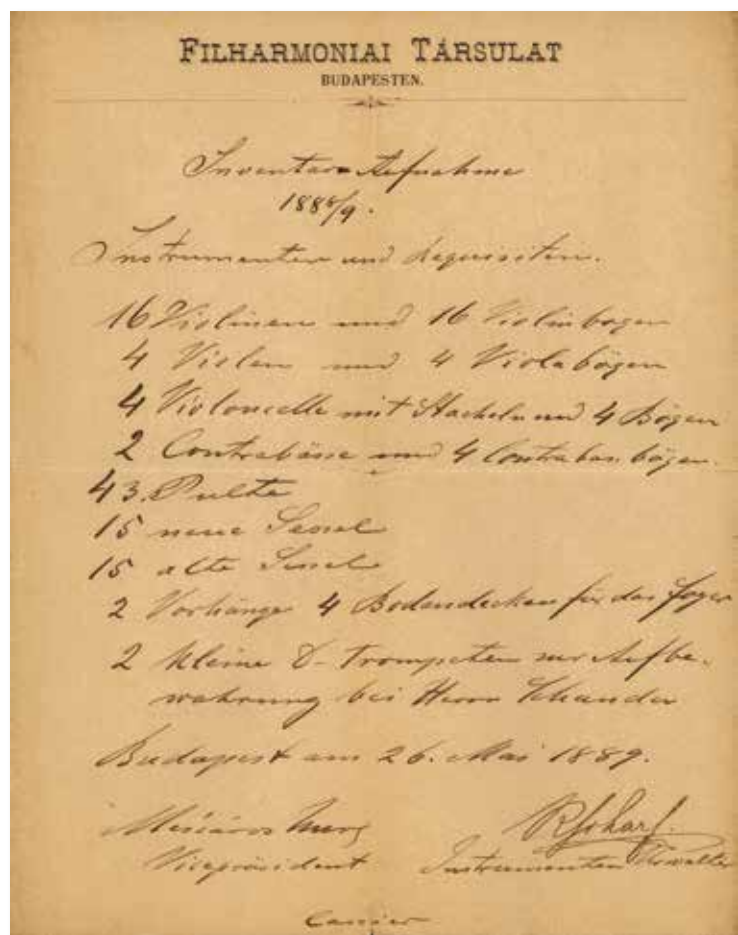 FILHARMONIAI TÁRSULAT
BUDAPESTEN.
Inventar-Aufnahme
1888/9.
Instrumenten und Requisiten.
16 Violinen und 16 Violinbogen
4 Violen und 4 Violabögen
4 Violoncelle mit Stacheln und 4 Bögen
2 Contrabässe und 4 Contrabassbögen.
43. Pulte
15 neue Sessel
15 alte Sessel
2 Vorhänge 4 Bodendecken für das Foyer
2 kleine D-Trompeten zur Aufbe-
wahrung bei Herrn
Budapest am 26. Mai 1889.
Vicepräsident
Instrumenten